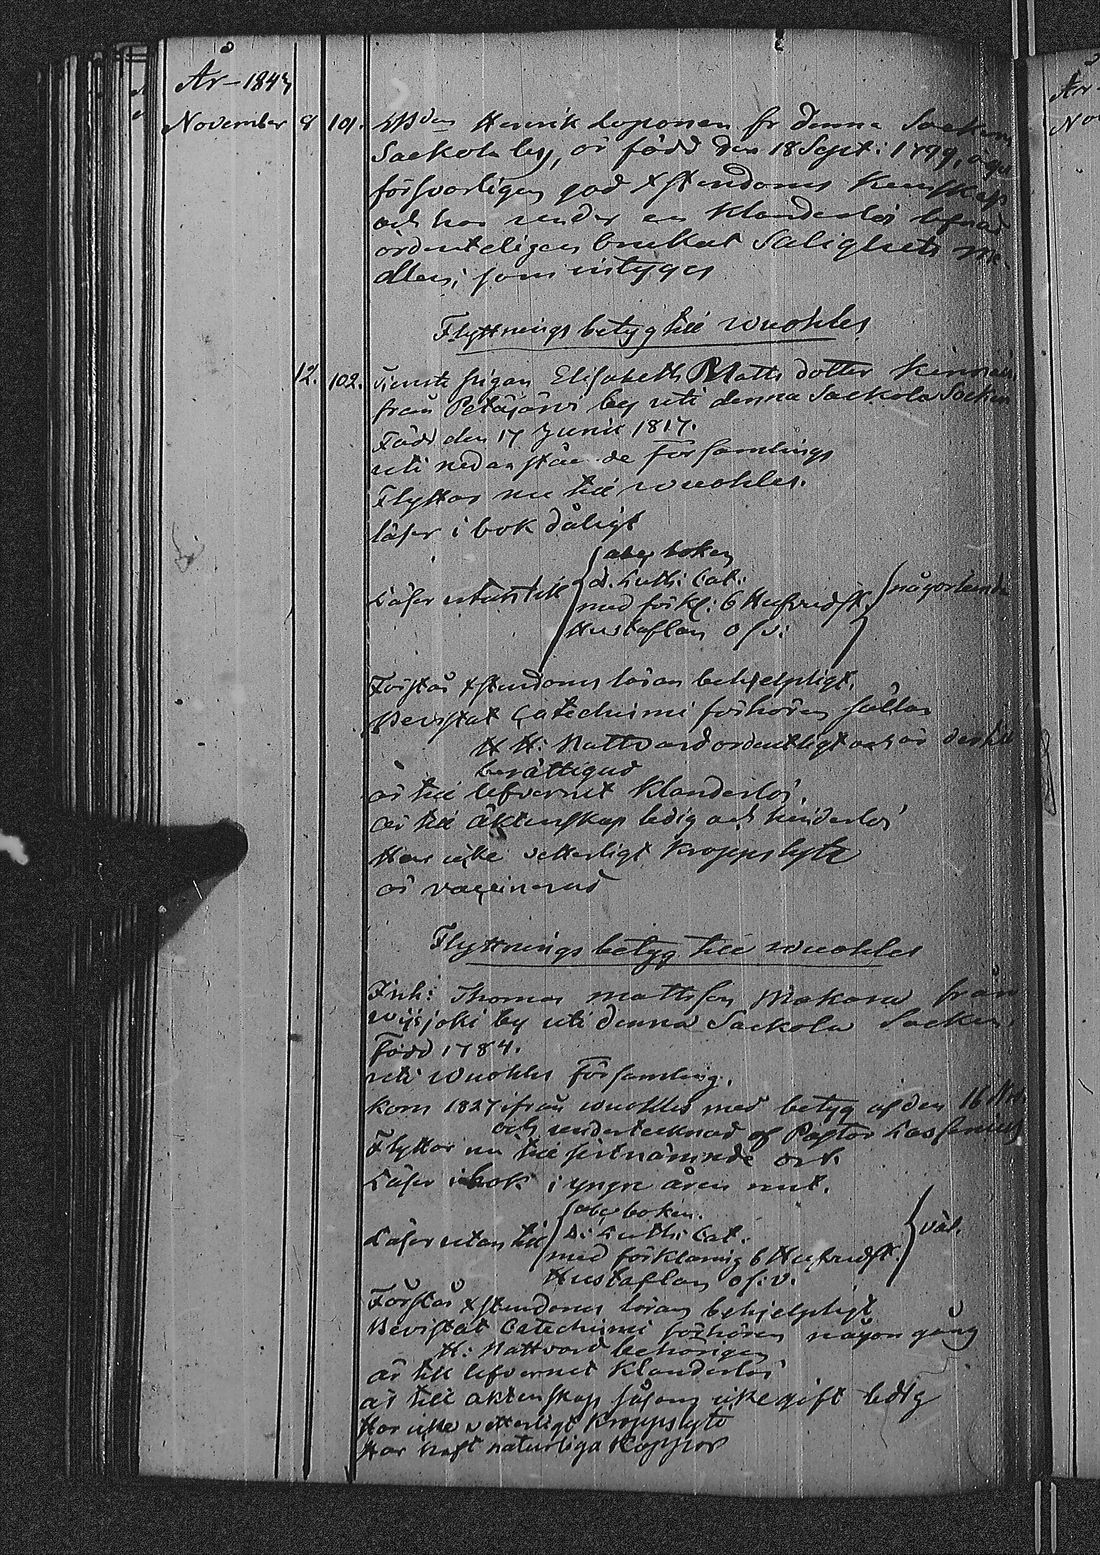 År 1847
November 8 101. Henrik Loponen fr denna Socken
Sackola by, är född den 18 Sept: 1799, äger
försvarligen god Xstendoms Kunskap
och har under en Klanderlös lefnad
ordenteligen brukat Salighets me-
dlen, som intygas
Flyttnings betyg till Wuohles
12. 102. Tienste pigan Elisabeth Matts dotter
från Petäjärvi by uti denna Sackola Socken
Född den 17 Junii 1817.
uti nedanstående församling
Flyttar nu till Wuohles.
läser i bok dåligt
Läser utantill
abc boken
d. Luth: Cat:
med förkl: 6 Hufvudst.
Hustaflan o s v:
någorlunda
Förstår Xstendoms läran behjelpligt.
Bevistat Catechismi förhören sällan
H H: Nattvard ordentligt och är dertill
berättigad
är till lefvernet Klanderlös.
är till äktenskap ledig och hinderlös
Har icke vetterligt Kroppslyte
är vaccinerad
Flyttnings betyg till Wuohles
Inh: Thomas Mattsson Makara från
Wiisjoki by uti denna Sackola Socken,
Född 1784.
uti Wuohles Församling.
Kom 1827 ifrån Wuohles med betyg af den 16
och undertecknad af Pastor Lassenius
Flyttar nu till förenämnde ort.
Läser i bok i yngre åren nut.
Läser utan till
abc boken.
d: Luth: Cat:
med förklaring 6 Hufvudst.
Hustaflan o s: v.
väl.
Förstår Xstendoms läran behjelpligt
Bevistat Catechismi förhören någon gång
H: Nattvard behörigen
är till lefvernet Klanderlös
är till äktenskap såsom icke gift ledig
Har icke vetterligt Kroppslyte
Har haft naturliga Koppor